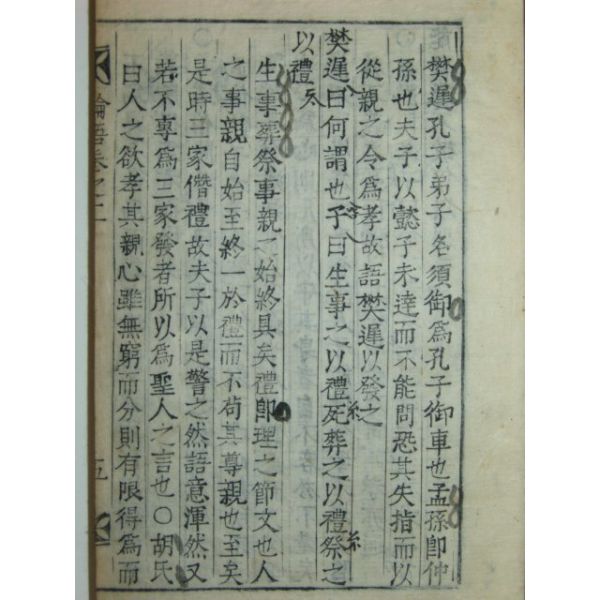 樊遲孔子弟子名須御為孔子御車也孟孫卽仲
孫也夫子以懿子未達而不能問恐其失指而以
從親之令爲孝故語樊遲以發之
樊遲曰何謂也子曰生事之以禮死葬之以禮祭之
以禮
生事葬祭事親之始終具矣禮卽理之節文也人
之事親自始至終一於禮而不苟其尊親也至矣
是時三家僭禮故夫子以是警之然語意渾然又
若不專爲三家發者所以爲聖人之言也○胡氏
曰人之欲孝其親心雖無窮而分則有限得爲而
論語卷之二
五